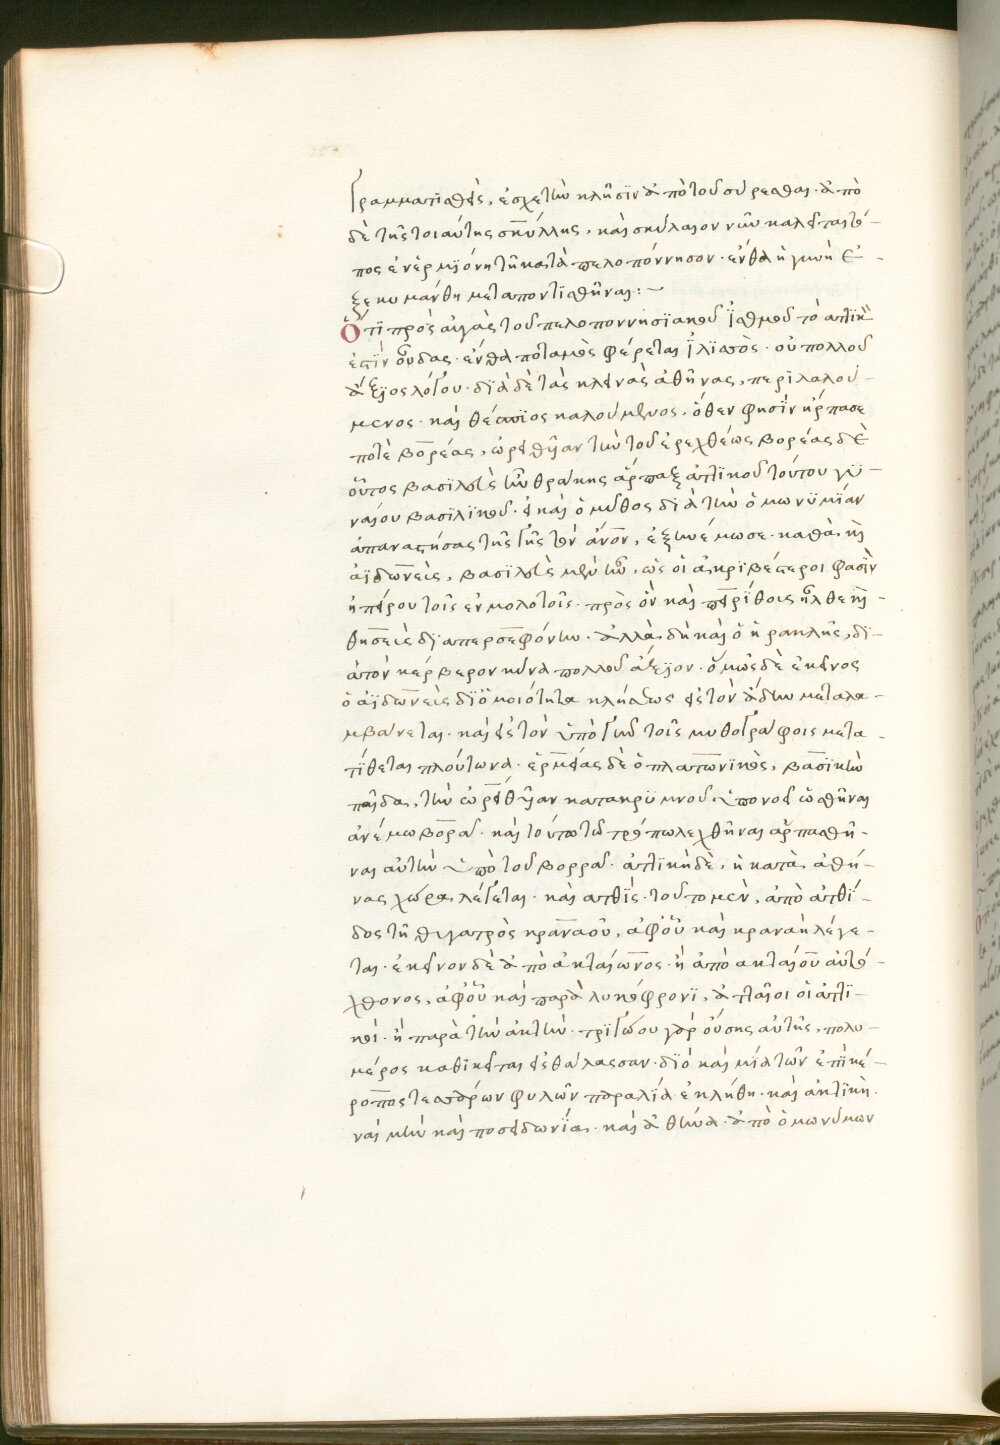 γραμματισθεὶς, ἔσχε τὴν κλῆσϊν ἀπὸ τοῦ σύρεσθαι. ἀπὸ
δὲ τῆς τοιαύτης σκύλλης, καὶ σκύλαιον νῦν καλεῖται τό-
πος ἐν ἑρμϊόνη τῆ κατὰ πελοπόννησον. ἔνθα ἡ γυνὴ ἐ-
ξεκυμάνθη μεταποντισθῆναι:~
Ὅτϊ πρὸς αὐγὰς τοῦ πελοποννησϊακοῦ ἰσθμοῦ τὸ ἀττϊκὸν
ἐστὶν οὖδας. ἔνθα πόταμὸς φέρεται ἰλϊσσὸς. οὐ πολλοῦ
ἄξϊος λόγου. δϊὰ δὲ τὰς κλεινὰς ἀθήνας, περϊλαλού-
μενος. καὶ θέσπϊος καλούμενος. ὅθεν φησὶν ἥρπασε
ποτὲ βορέας, ὠρείθυϊαν τὴν τοῦ ἐρεχθέως βορέας δὲ
οὗτος βασϊλεὺς ἦν θράκης ἅρπαξ ἀττϊκοῦ τούτου γϋ-
ναίου βασϊλϊκοῦ. εἰ καὶ ὁ μῦθος δϊὰ τὴν ὁμωνϋμίαν
ἀπαναστήσας τῆς γῆς τὸν ἄνον, ἐξηνέμωσε. καθὰ καὶ
ἀϊδωνεὺς, βασϊλεὺς μὲν ἦν, ὡς οἱ ἀκρϊβέστεροι φασὶν
ἠπείρου τοῖς ἐν μολοτοῖς. πρὸς ὃν καὶ πειρίθοις ἦλθε καὶ
θησεὺς δϊα περσεφόνην. ἀλλὰ δὴ καὶ ὁ ἡρακλῆς, δϊ-
ὰ τὸν κέρβερον κύνα πολλοῦ ἄξϊον. ὅμως δὲ ἐκεῖνος
ὁ αϊδωνεὺς δϊ ὁμοιότητα κλήσεως εἰς τὸν ἅδην μεταλα-
μβάνεται. καὶ εἰς τὸν ὑπὸ γῆν τοῖς μυθογράφοις μετα-
τίθεται πλούτωνα. ἑρμείας δὲ ὁ πλατωνϊκὸς, βασϊκὴν
παῖδα, τὴν ὠρείθυϊαν κατακρϋμνοῦ ὑπονοεῖ ὠσθῆναι
ἀνέμω βορρᾶ. καὶ τούτω τῷ τρόπω λεχθῆναι ἁρπασθῆ-
ναι αὐτὴν ὑπὸ τοῦ βορρᾶ. ἀττϊκὴ δὲ, ἡ κατὰ ἀθή-
νας χώρα λέγεται. καὶ ατθὶς. τοῦτο μὲν, ἀπὸ ἀτθί-
δος τῆς θυγατρὸς κραναοῦ, ἀφ’ οὗ καὶ κραναὴ λέγε-
ται. ἐκεῖνον δὲ ἀπὸ ἀκταίωνος. ἢ ἀπὸ ακταίου αὐτό-
χθονος, ἀφ’ οὗ καὶ παρὰ λυκόφρονϊ, ἀκταῖοι οἱ ἀττϊ-
κοὶ. ἢ παρὰ τὴν ἀκτὴν. τρϊγώου γὰρ οὔσης αὐτῆς, πολυ-
μέρος καθϊκεῖται εἰς θάλασσαν. δϊὸ καὶ μία τῶν ἐπὶ κέ-
ροπος τεσσάρων φυλῶν παραλία ἐκλήθη. καὶ ἀκτϊκὴ.
ναὶ μὴν καὶ ποσειδωνΐα. καὶ ἀθηνᾶ. ἀπὸ ὁμωνύμων